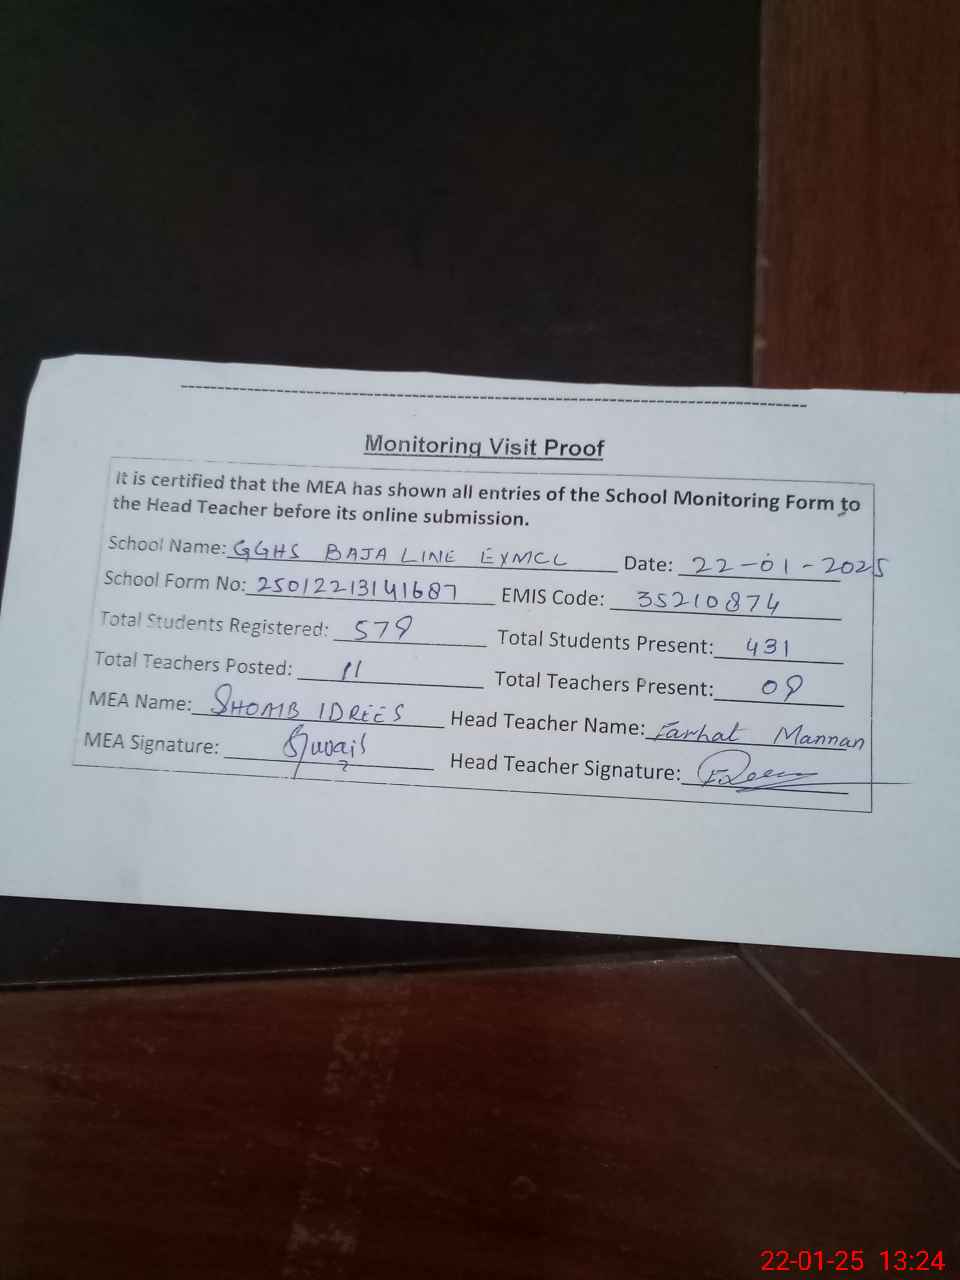 Monitoring Visit Proof
It is certified that the MEA has shown all entries of the School Monitoring Form to
the Head Teacher before its online submission.
School Name: GGHS BAJA LINE EXMCL Date: 22-01-2025
School Form No: 25012213141687 EMIS Code: 35210874
Total Students Registered: 579 Total Students Present: 431
Total Teachers Posted: 11 Total Teachers Present: 09
MEA Name: SHOAIB IDREES Head Teacher Name: Farhat Mannan
MEA Signature: Head Teacher Signature:
22-01-25 13:24